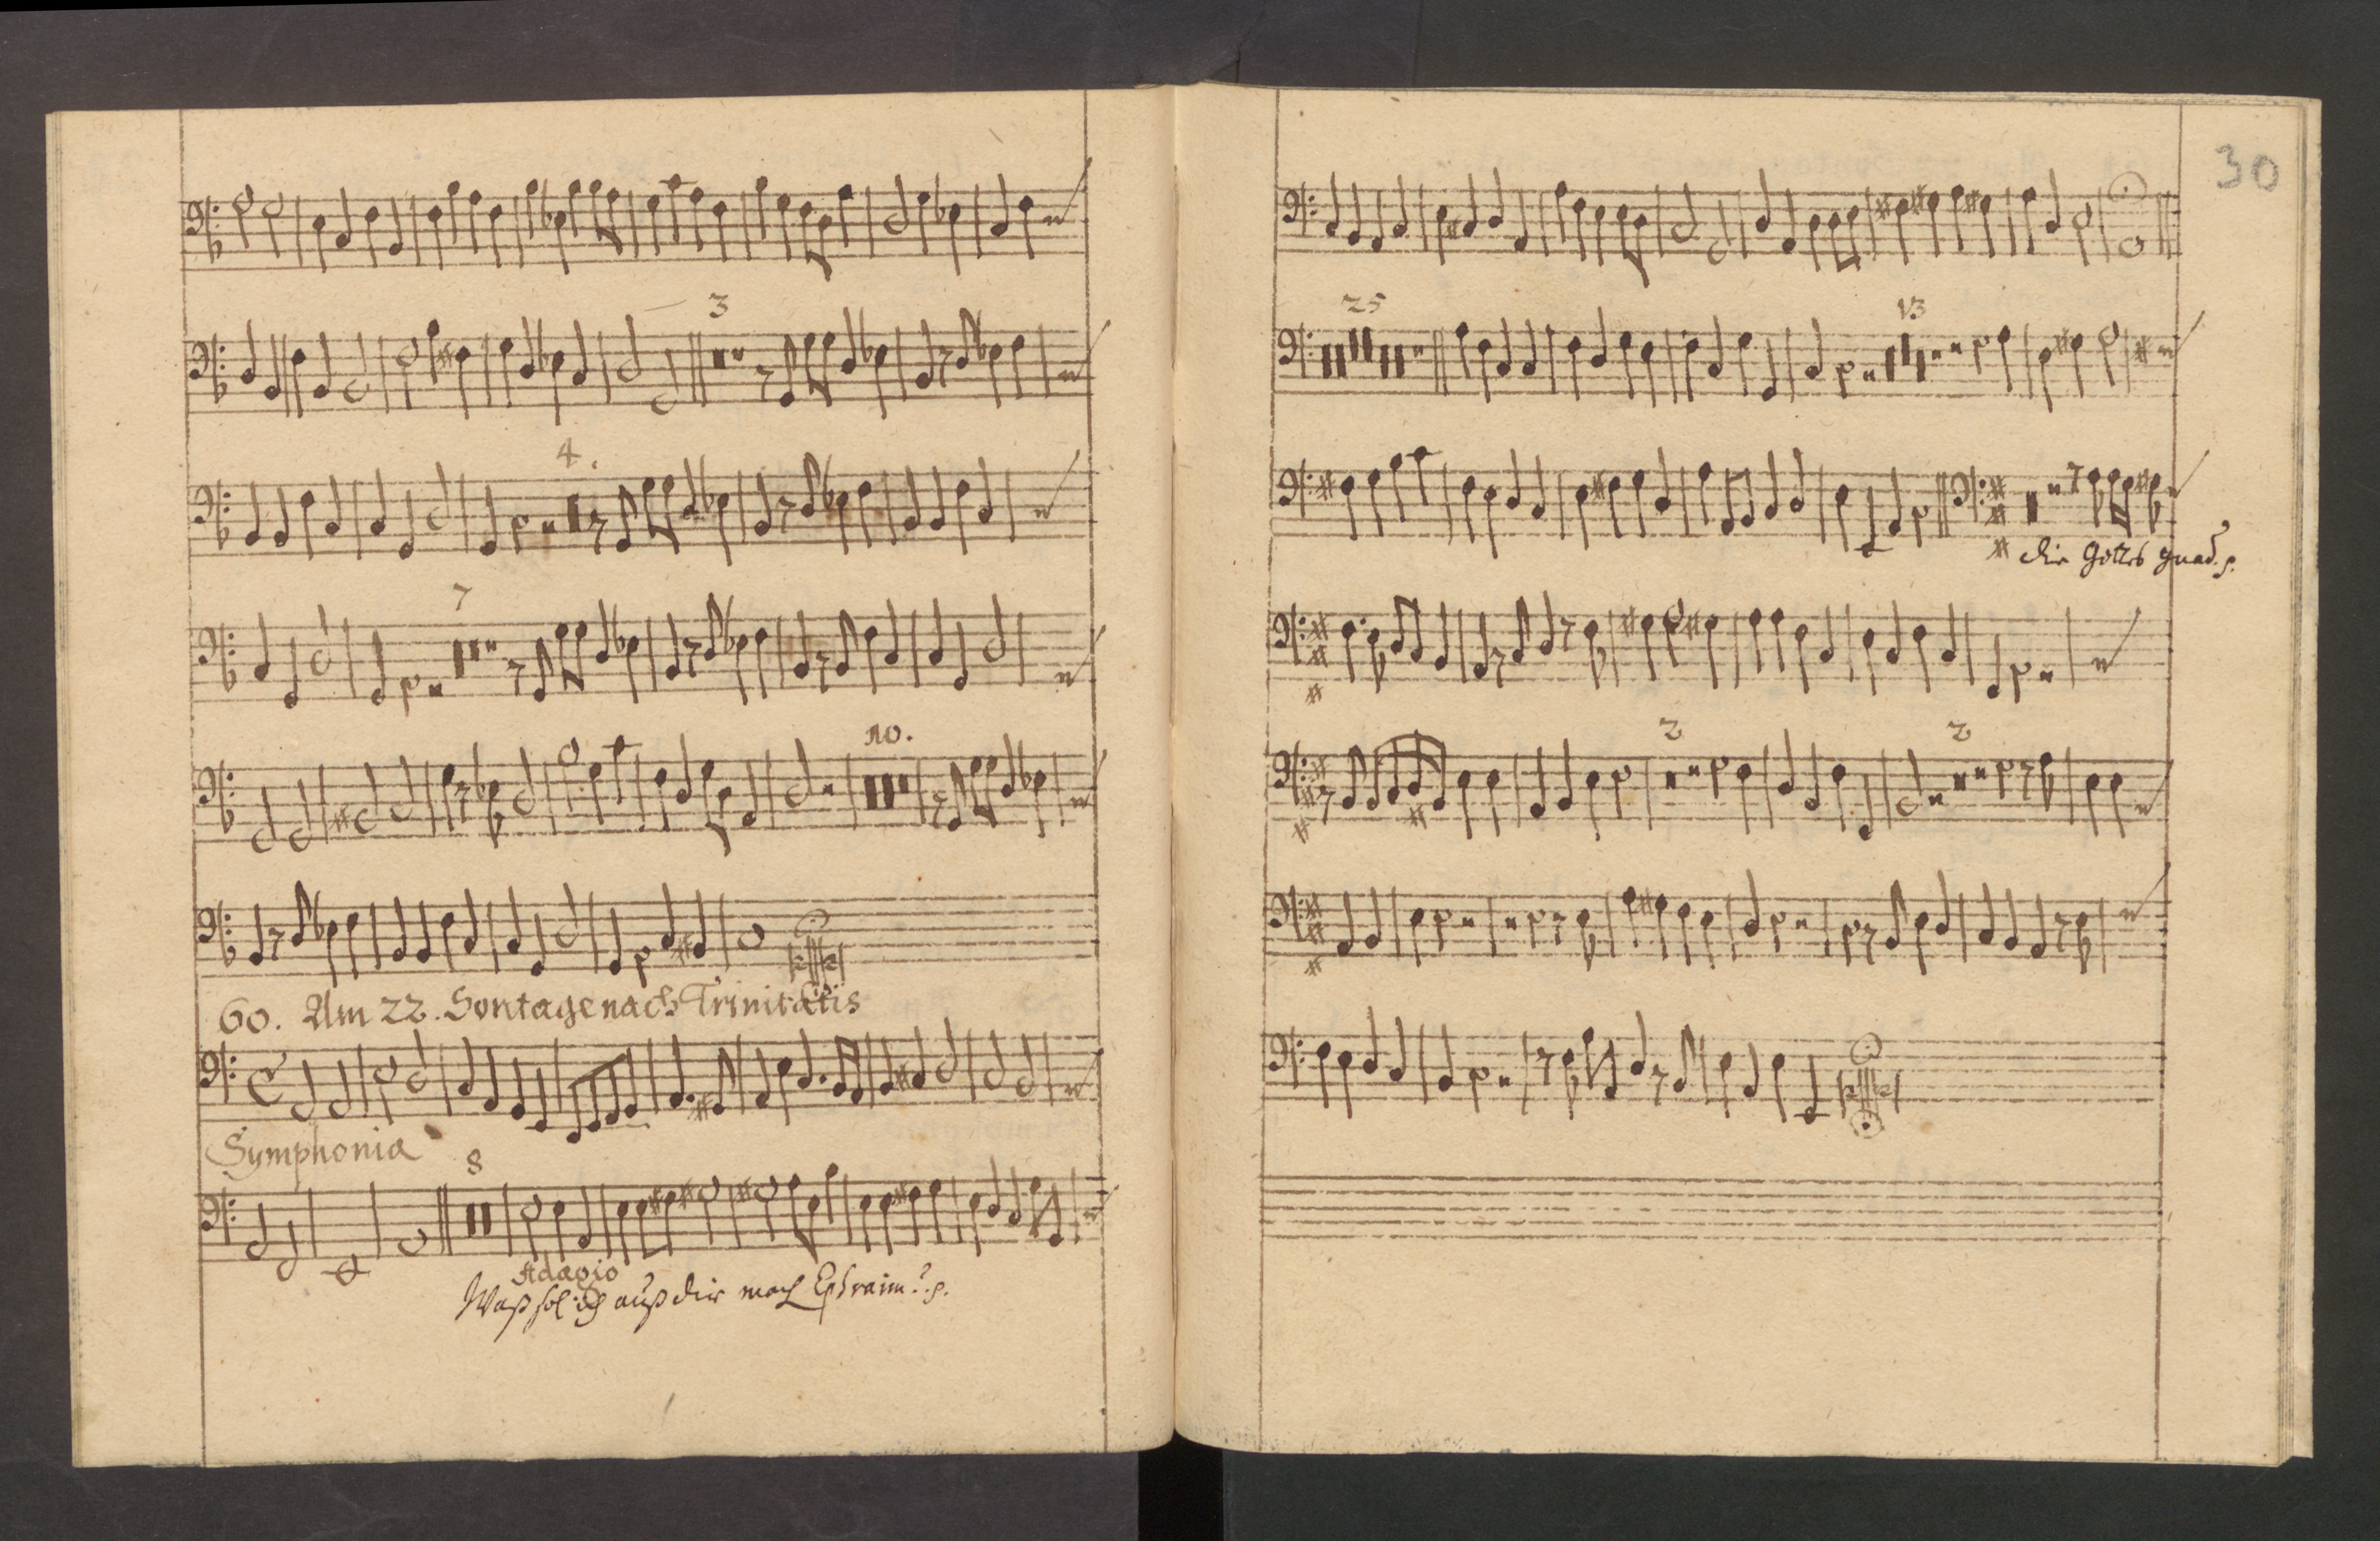 3
4.
7
10.
60. Am 22. Sontage nach Trinitatis
Symphonia
8
Adagio
Waß sol ich auß dir mach Ephraim? p.
30
25
13
die Gottes gnad. p.
2 2